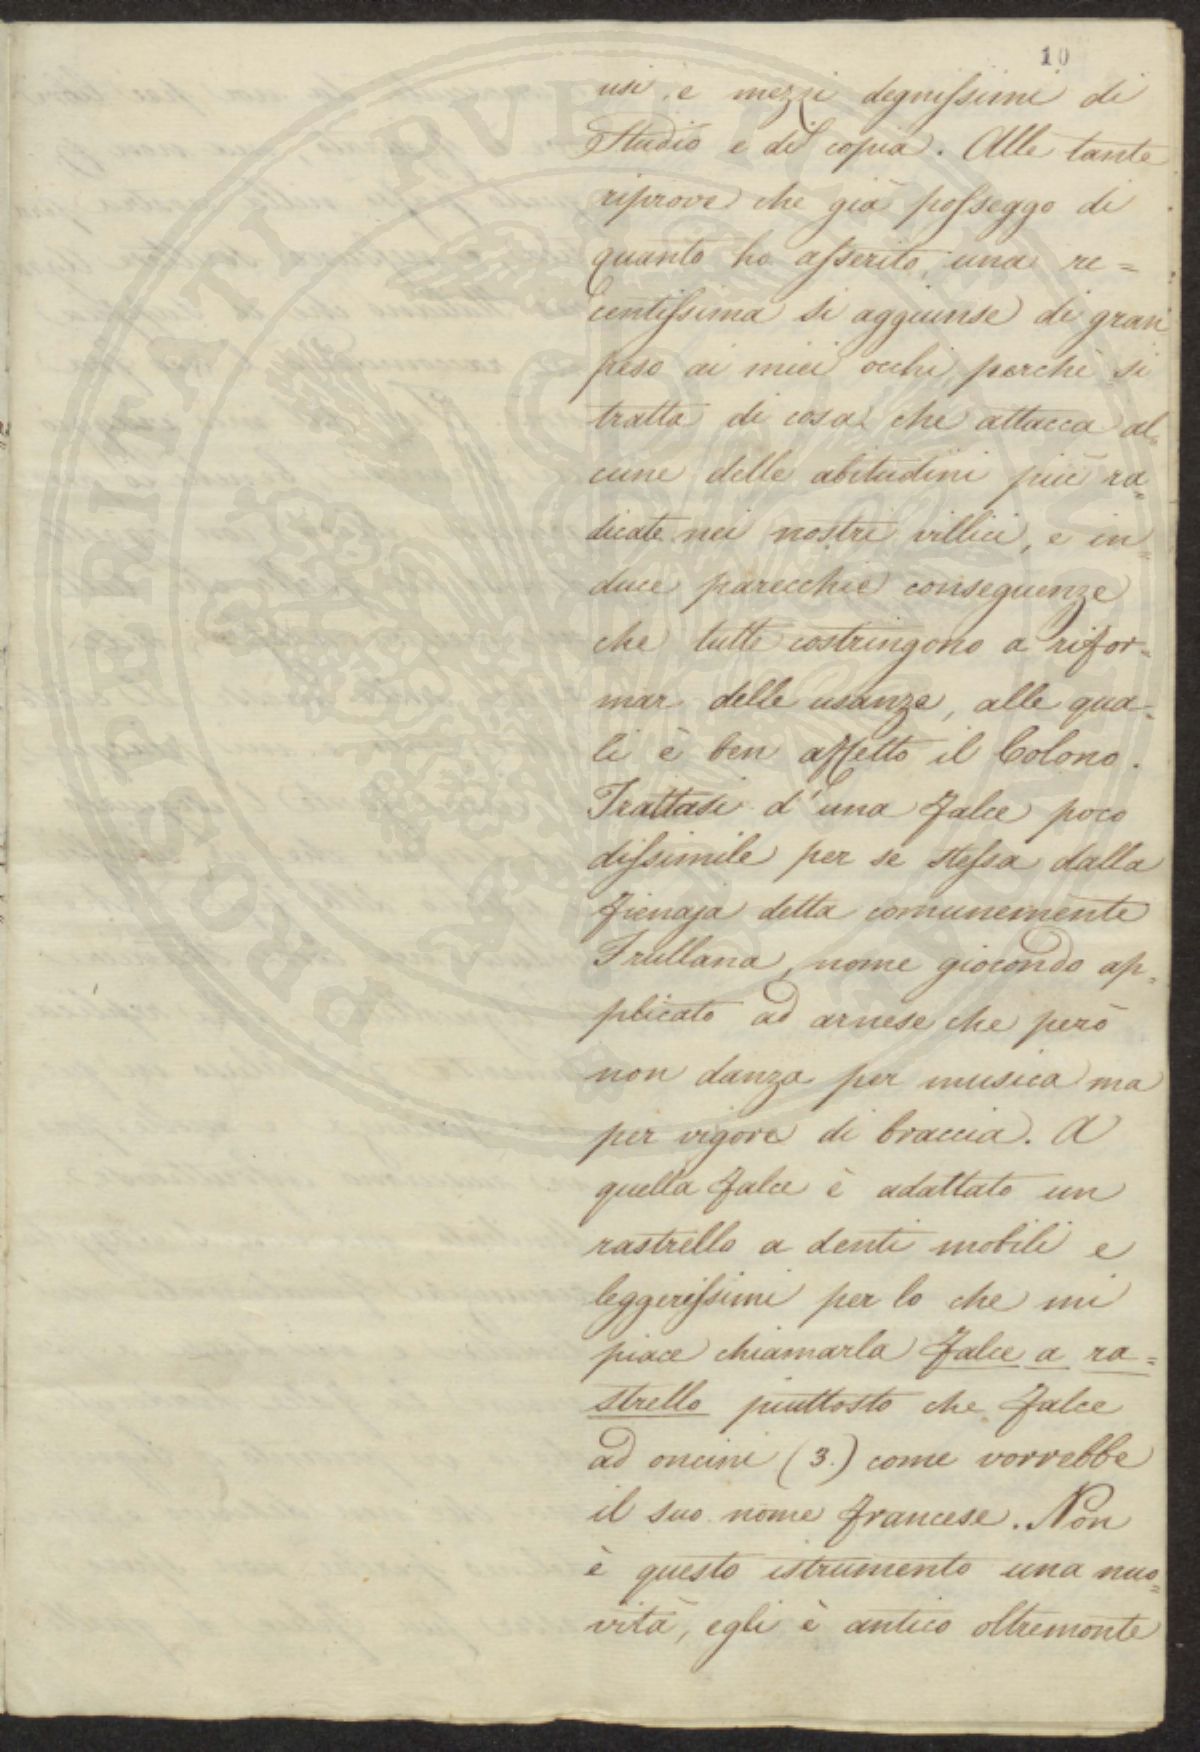 10
usi, e mezzi degnissimi di
Studio e di copia. Alle tante
riprove che già posseggo di
quanto ho asserito, una re=
centissima si aggiunse di gran
peso ai miei occhi, perchè si
tratta di cosa che attacca al=
cune delle abitudini più ra=
dicate nei nostri villici, e in=
duce parecchie conseguenze
che tutte costringono a rifor=
mar delle usanze, alle qua=
li è ben affetto il Colono.
Trattasi d'una falce poco
dissimile per se stessa dalla
fienaja detta comunemente
Frullana, nome giocondo ap=
plicato ad arnese che però
non danza per musica ma
per vigore di braccia. A
quella falce è adattato un
rastrello a denti mobili e
leggerissimi per lo che mi
piace chiamarla falce a ra=
strello piuttosto che falce
ad oncini (3.) come vorrebbe
il suo nome francese. Non
è questo istrumento una nuo=
vità, egli è antico oltremonte
PROSPERITATI PVBLICAE